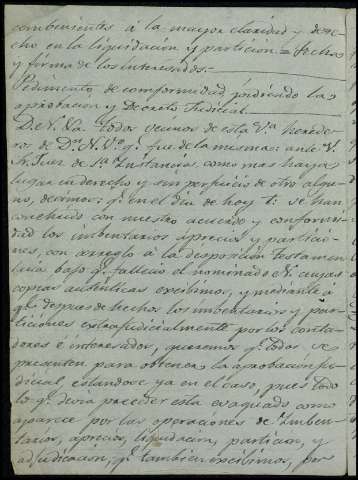 combenientes á la mayor claridad y dere
cho en la liquidacion y particion = fecha
y forma de los interesados.
Pedimento de conformidad pidiendo la
aprobacion y Decreto Judicial
D. é N. Va. todos vecinos de esta Va. herede
ros de Dn. N. Vo. q. fue de la misma: ante V.
Sr. Juez de 1a. Instancia, como mas haya
lugar en derecho y sin perjuicio de otro algu
no, decimos: q. en el dia de hoy t: se han
concluido con nuestro acuerdo y conformi
dad los imbentarios aprecios y particio
nes, con arreglo á la desposicion testamen
taria bajo q. fallecio el nominado N. cuyas
copias autenticas excibimos, y mediante á
q. despues de hechos los imbentarios y par
ticiones extrajudicialmente por los conta
dores é interesados, queremos q. todos se
presenten para obtener la aprobacion ju
dicial, estandose ya en el caso, pues todo
lo q. devia preceder esta evaquado como
aparece por las operaciones de Imben
tarios, aprecios, liquidacion, particion, y
adjudicacion, q. tambien excibimos, por